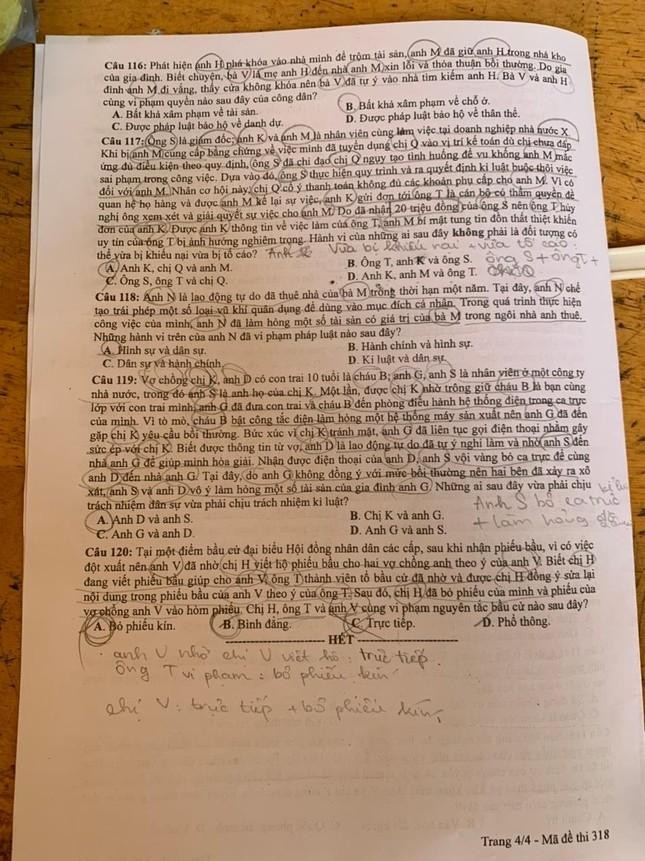 Câu 116: Phát hiện anh H phá khóa vào nhà mình để trộm tài sản, anh M đã giữ anh H trong nhà kho
của gia đình. Biết chuyện, bà V là mẹ anh H đến nhà anh M xin lỗi và thỏa thuận bồi thường. Do gia
đình anh M đi vắng, thấy cửa không khóa nên bà V đã tự ý vào nhà tìm kiếm anh H. Bà V và anh H
cùng vi phạm quyền nào sau đây của công dân?
A. Bất khả xâm phạm về tài sản. B. Bất khả xâm phạm về chỗ ở.
C. Được pháp luật bảo hộ về danh dự. D. Được pháp luật bảo hộ về thân thể.
Câu 117: Ông S là giám đốc; anh K và anh M là nhân viên cùng làm việc tại doanh nghiệp nhà nước X.
Khi bị anh M cung cấp bằng chứng về việc mình đã tuyển dụng chị Q vào vị trí kế toán dù chị chưa đáp
ứng đủ điều kiện theo quy định, ông S đã chỉ đạo chị Q ngụy tạo tình huống để vu khống anh M mắc
sai phạm trong công việc. Dựa vào đó, ông S thực hiện quy trình và ra quyết định kỉ luật buộc thôi việc
đối với anh M. Nhân cơ hội này, chị Q cố ý thanh toán không đủ các khoản phụ cấp cho anh M. Vì có
quan hệ họ hàng và được anh M kể lại sự việc, anh K gửi đơn tới ông T là cán bộ có thẩm quyền đề
nghị ông xem xét và giải quyết sự việc cho anh M. Do đã nhận 20 triệu đồng của ông S nên ông T hủy
đơn của anh K. Được anh K thông tin về việc làm của ông T, anh M bí mật tung tin đồn thất thiệt khiến
uy tín của ông T bị ảnh hưởng nghiêm trọng. Hành vi của những ai sau đây không phải là đối tượng có
thể vừa bị khiếu nại vừa bị tố cáo? Anh K Vừa bị khiếu nại + vừa tố cáo:
A. Anh K, chị Q và anh M. B. Ông T, anh K và ông S. ông S + ông T +
C. Ông S, ông T và chị Q. D. Anh K, anh M và ông T. chị Q
Câu 118: Anh N là lao động tự do đã thuê nhà của bà M trong thời hạn một năm. Tại đây, anh N chế
tạo trái phép một số loại vũ khí quân dụng để dùng vào mục đích cá nhân. Trong quá trình thực hiện
công việc của mình, anh N đã làm hỏng một số tài sản có giá trị của bà M trong ngôi nhà anh thuê.
Những hành vi trên của anh N đã vi phạm pháp luật nào sau đây?
A. Hình sự và dân sự. B. Hành chính và hình sự.
C. Dân sự và hành chính. D. Kỉ luật và dân sự.
Câu 119: Vợ chồng chị K, anh D có con trai 10 tuổi là cháu B; anh G, anh S là nhân viên ở một công ty
nhà nước, trong đó anh S là anh họ của chị K. Một lần, được chị K nhờ trông giữ cháu B là bạn cùng
lớp với con trai mình, anh G đã đưa con trai và cháu B đến phòng điều hành hệ thống điện trong ca trực
của mình. Vì tò mò, cháu B bật công tắc điện làm hỏng một hệ thống máy sản xuất nên anh G đã đến
gặp chị K yêu cầu bồi thường. Bức xúc vì chị K tránh mặt, anh G đã liên tục gọi điện thoại nhằm gây
sức ép với chị K. Biết được thông tin từ vợ, anh D là lao động tự do đã tự ý nghỉ làm và nhờ anh S đến
nhà anh G để giúp mình hòa giải. Nhận được điện thoại của anh D, anh S vội vàng bỏ ca trực để cùng
anh D đến nhà anh G. Tại đây, do anh G không đồng ý với mức bồi thường nên hai bên đã xảy ra xô
xát, anh S và anh D vô ý làm hỏng một số tài sản của gia đình anh G. Những ai sau đây vừa phải chịu
trách nhiệm dân sự vừa phải chịu trách nhiệm kỉ luật? Anh S bỏ ca trực
A. Anh D và anh S. B. Chị K và anh G. + làm hỏng
C. Anh G và anh D. D. Anh G và anh S.
Câu 120: Tại một điểm bầu cử đại biểu Hội đồng nhân dân các cấp, sau khi nhận phiếu bầu, vì có việc
đột xuất nên anh V đã nhờ chị H viết hộ phiếu bầu cho hai vợ chồng anh theo ý của anh V. Biết chị H
đang viết phiếu bầu giúp cho anh V, ông T thành viên tổ bầu cử đã nhờ và được chị H đồng ý sửa lại
nội dung trong phiếu bầu của anh V theo ý của ông T. Sau đó, chị H đã bỏ phiếu của mình và phiếu của
vợ chồng anh V vào hòm phiếu. Chị H, ông T và anh V cùng vi phạm nguyên tắc bầu cử nào sau đây?
A. Bỏ phiếu kín. B. Bình đẳng. C. Trực tiếp. D. Phổ thông.
HẾT
anh V nhờ chị V viết hộ: trực tiếp.
ông T vi phạm: bỏ phiếu kín
chị V: trực tiếp + bỏ phiếu kín,
Trang 4/4 - Mã đề thi 318